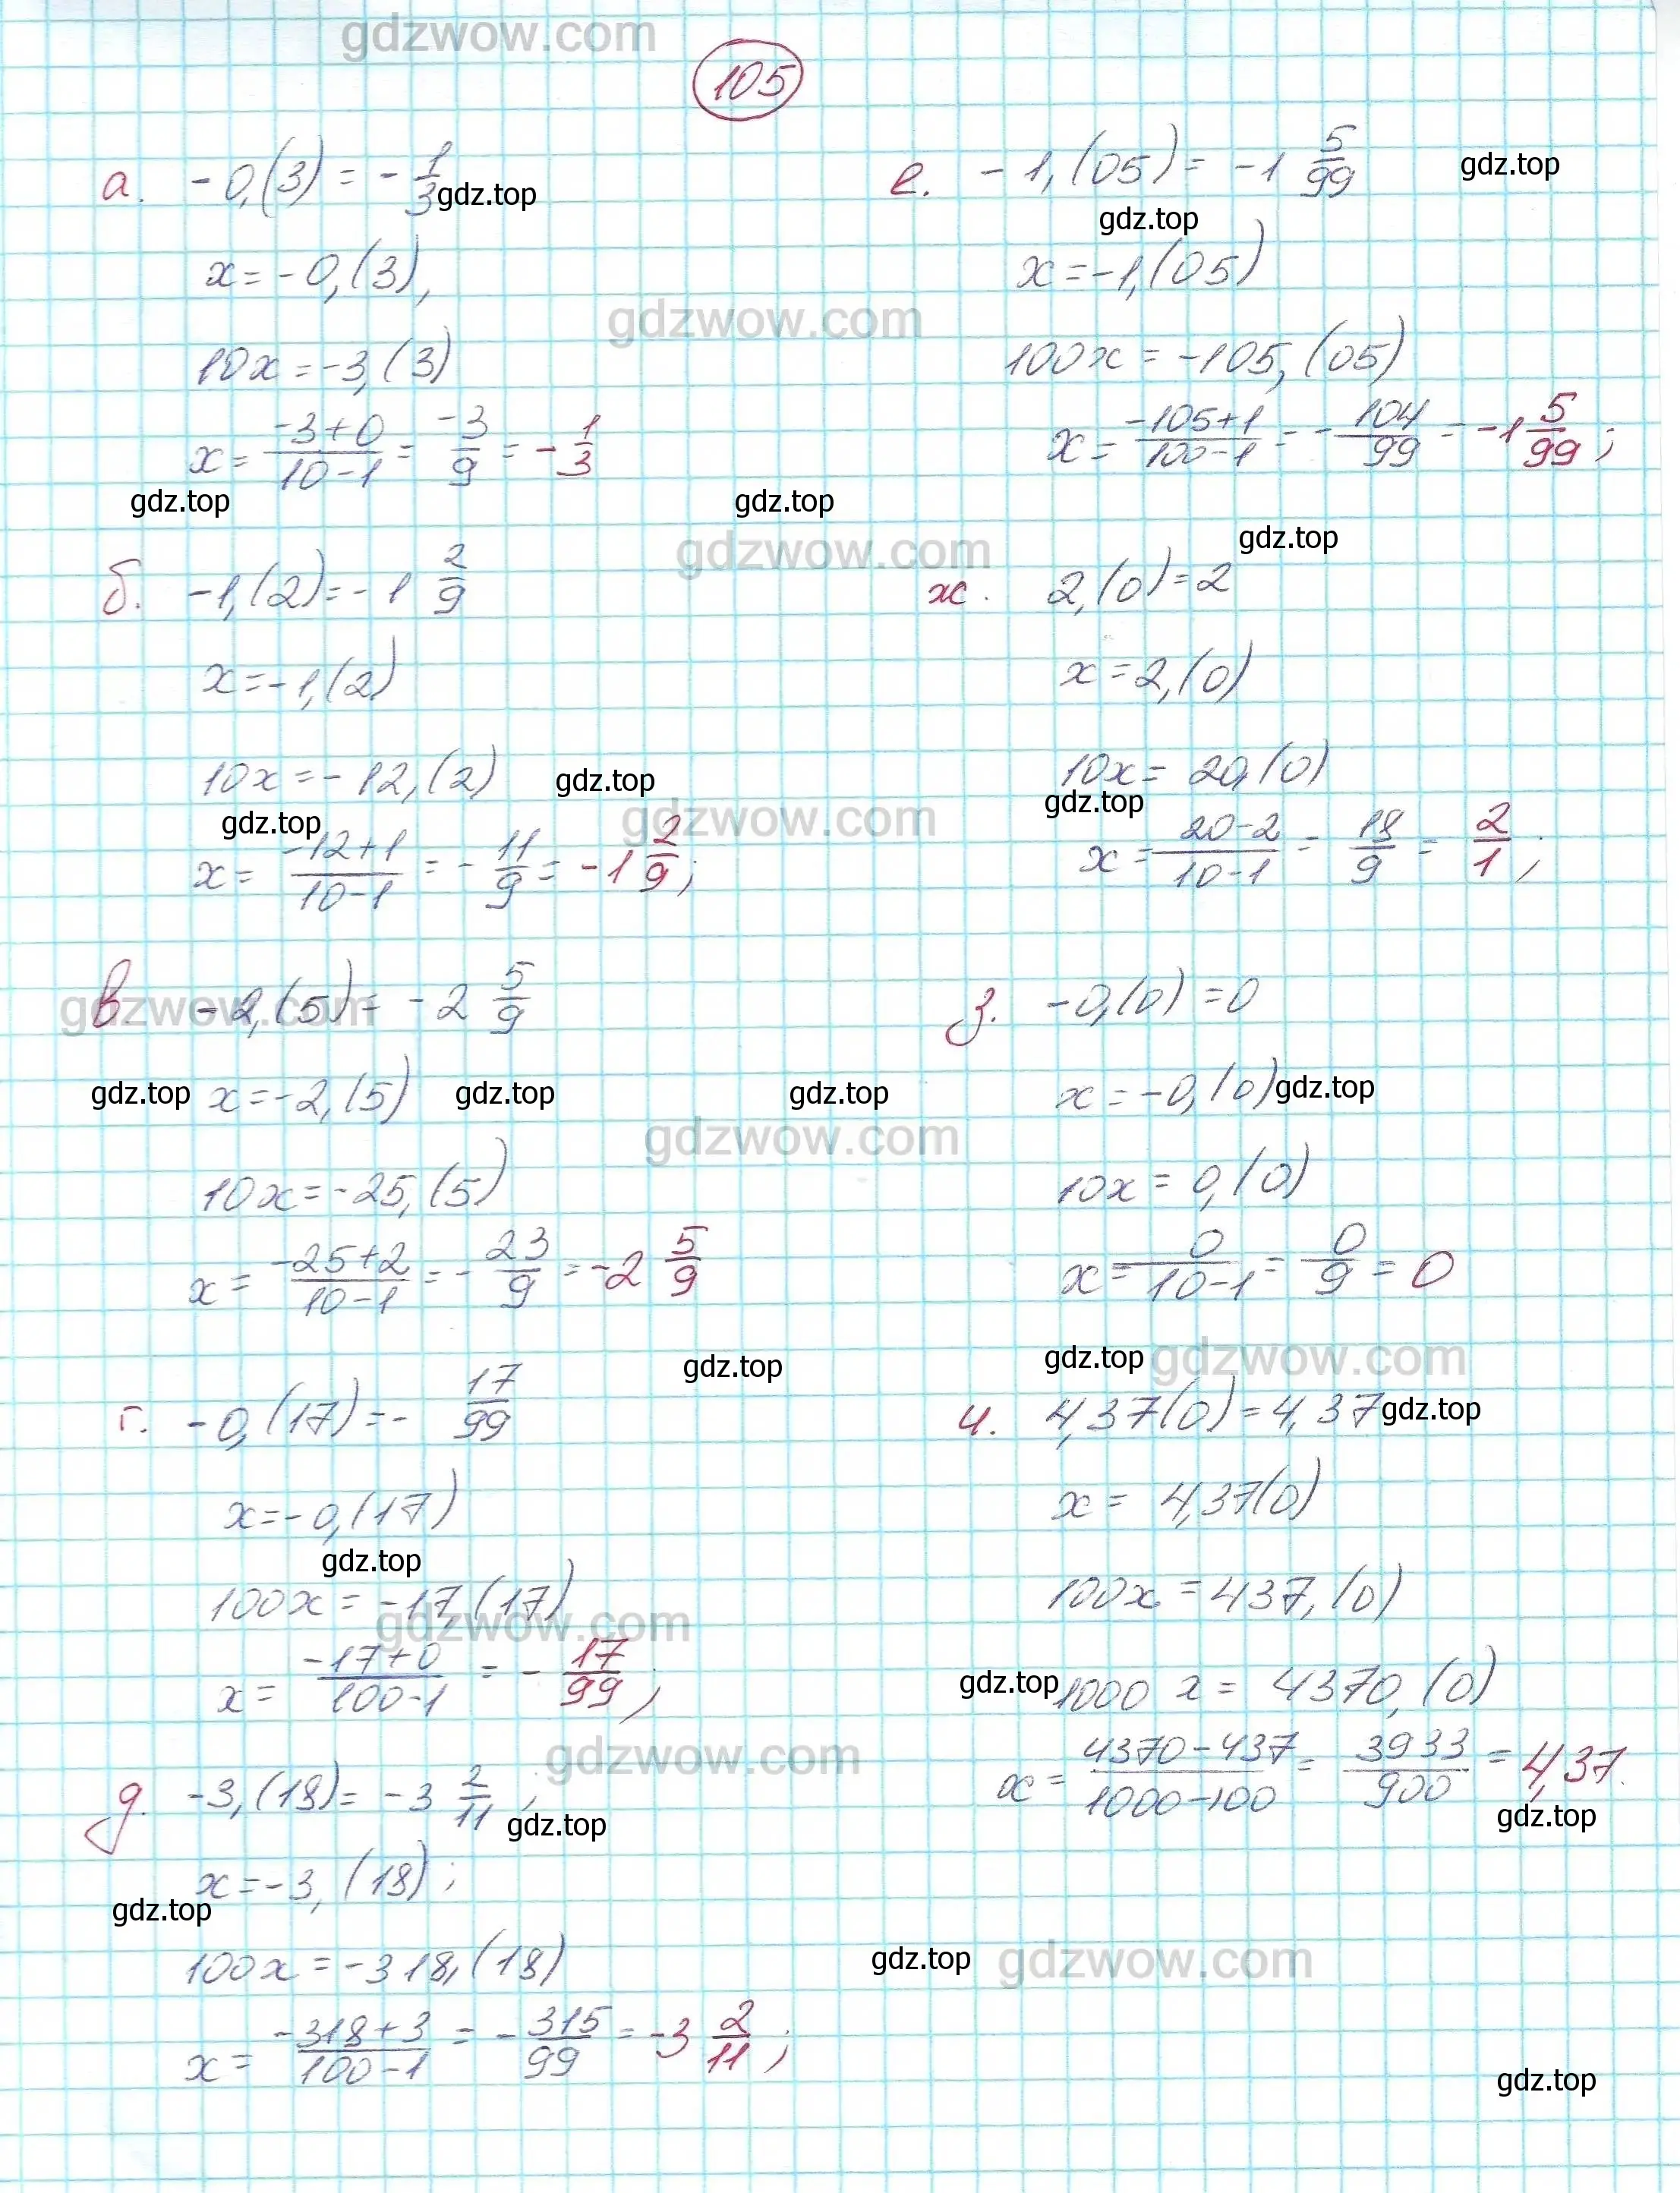 gdzwow.com
105
а. -0,(3) = -1/3 gdz.top
x = -0,(3),
10x = -3,(3)
x = (-3+0)/(10-1) = -3/9 = -1/3
gdz.top
б. -1,(2) = -1 2/9
x = -1,(2)
10x = -12,(2) gdz.top
gdz.top
x = (-12+1)/(10-1) = -11/9 = -1 2/9;
в -2,(5) = -2 5/9
gdz.top x = -2,(5) gdz.top
10x = -25,(5)
x = (-25+2)/(10-1) = -23/9 = -2 5/9
gdz.top
г. -0,(17) = -17/99
x = -0,(17)
gdz.top
100x = -17,(17)
x = (-17+0)/(100-1) = -17/99;
д. -3,(18) = -3 2/11;
gdz.top
x = -3,(18);
gdz.top
100x = -318,(18)
x = (-318+3)/(100-1) = -315/99 = -3 2/11;
е. -1,(05) = -1 5/99 gdz.top
gdz.top
x = -1,(05)
gdzwow.com
100x = -105,(05)
x = (-105+1)/(100-1) = -104/99 = -1 5/99;
gdz.top
gdzwow.com
gdz.top
ж. 2,(0) = 2
x = 2,(0)
10x = 20,(0)
gdz.top
gdzwow.com
x = (20-2)/(10-1) = 18/9 = 2/1;
gdzwow.com
з. -0,(0) = 0
gdz.top
x = -0,(0) gdz.top
gdzwow.com
10x = 0,(0)
x = 0/(10-1) = 0/9 = 0
gdz.top gdzwow.com
и. 4,37(0) = 4,37 gdz.top
x = 4,37(0)
100x = 437,(0)
gdzwow.com
gdz.top 1000x = 4370,(0)
gdzwow.com
x = (4370-437)/(1000-100) = 3933/900 = 4,37.
gdz.top
gdz.top gdzwow.com
gdz.top